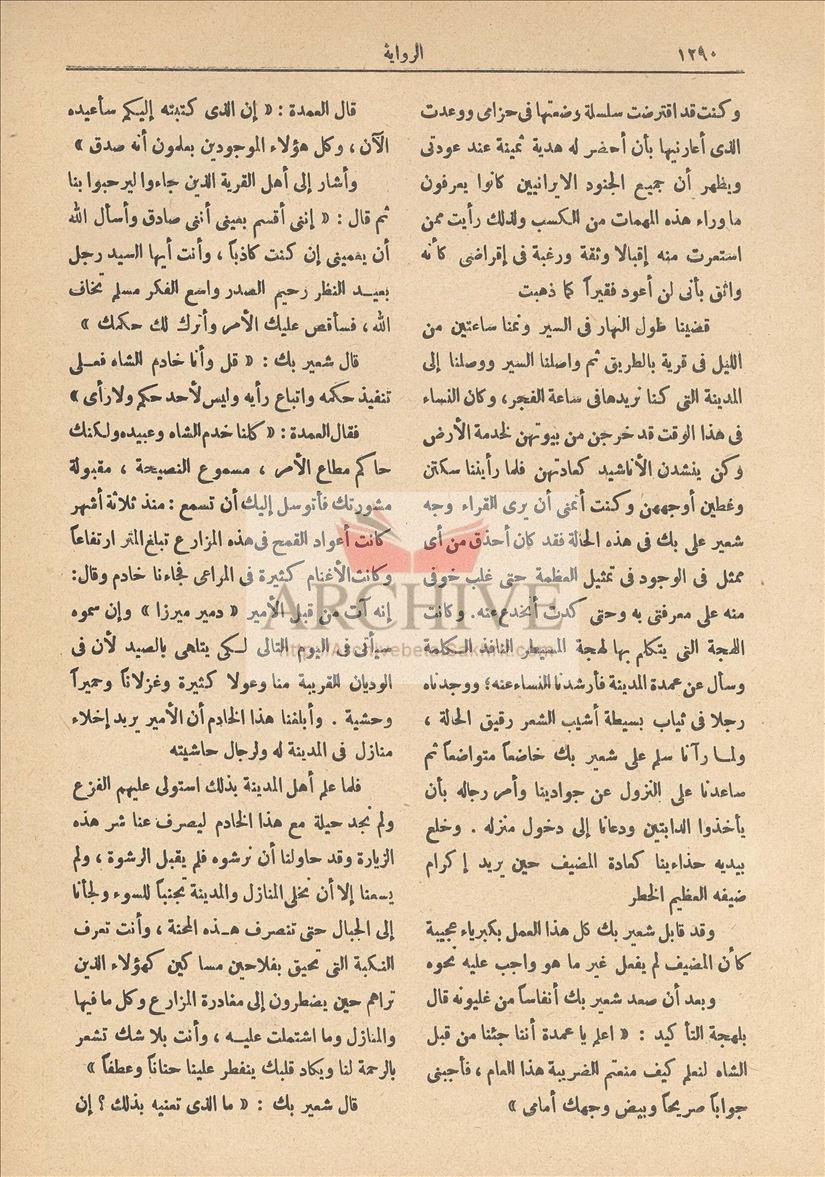 ١٢٩٠
الرواية
وكنت قد اقترضت سلسلة وضعتها فى حزامى ووعدت
الذى أعارنيها بأن أحضر له هدية ثمينة عند عودتى
ويظهر أن جميع الجنود الايرانيين كانوا يعرفون
ما وراء هذه المهمات من الكسب ولذلك رأيت ممن
استعرت منه إقبالا وثقة ورغبة فى إقراضى كأنه
واثق بأنى لن أعود فقيراً كما ذهبت
قضينا طول النهار فى السير ونمنا ساعتين من
الليل فى قرية بالطريق ثم واصلنا السير ووصلنا إلى
المدينة التى كنا نريدها فى ساعة الفجر، وكان النساء
فى هذا الوقت قد خرجن من بيوتهن لخدمة الأرض
وكن ينشدن الأناشيد كعادتهن فلما رأيننا سكتن
وغطين أوجههن وكنت أتمنى أن يرى القراء وجه
شعير على بك فى هذه الحالة فقد كان أحذق من أى
ممثل فى الوجود فى تمثيل العظمة حتى غلب خوفى
منه على معرفتى به وحتى كدت أنخدع عنه. وكانت
اللهجة التى يتكلم بها لهجة المسيطر النافذ الكلمة
وسأل عن عمدة المدينة فأرشدنا النساء عنه؛ ووجدناه
رجلا فى ثياب بسيطة أشيب الشعر رقيق الحالة ،
ولما رآنا سلم على شعير بك خاضعاً متواضعاً ثم
ساعدنا على النزول عن جوادينا وأمر رجاله بأن
يأخذوا الدابتين ودعانا إلى دخول منزله . وخلع
بيديه حذاءينا كعادة المضيف حين يريد إكرام
ضيفه العظيم الخطر
وقد قابل شعير بك كل هذا العمل بكبرياء عجيبة
كأن المضيف لم يفعل غير ما هو واجب عليه نحوه
وبعد أن صعد شعير بك أنفاساً من غليونه قال
بلهجة التأكيد : « اعلم يا عمدة أننا جئنا من قبل
الشاه لنعلم كيف منعتم الضريبة هذا العام ، فأجبنى
جواباً صريحاً وبيض وجهك أمامى »
قال العمدة : « إن الذى كتبته إليكم سأعيده
الآن ، وكل هؤلاء الموجودين يعلمون أنه صدق »
وأشار إلى أهل القرية الذين جاءوا ليرحبوا بنا
ثم قال : « إننى أقسم بعينى أننى صادق وأسأل الله
أن يعمينى إن كنت كاذباً ، وأنت أيها السيد رجل
بعيد النظر رحيم الصدر واسع الفكر مسلم تخاف
الله ، فسأقص عليك الأمر وأترك لك حكمك »
قال شعير بك : « قل وأنا خادم الشاه فعلى
تنفيذ حكمه واتباع رأيه وليس لأحد حكم ولا رأى »
فقال العمدة : « كلنا خدم الشاه وعبيده ولكنك
حاكم مطاع الأمر ، مسموع النصيحة ، مقبولة
مشورتك فأتوسل إليك أن تسمع : منذ ثلاثة أشهر
كانت أعواد القمح فى هذه المزارع تبلغ المتر ارتفاعاً
وكانت الأغنام كثيرة فى المراعى فجاءنا خادم وقال:
إنه آت من قبل الأمير « دمير ميرزا » وإن سموه
سيأتى فى اليوم التالى لكى يتلاهى بالصيد لأن فى
الوديان القريبة منا وعولا كثيرة وغزلاناً وحميراً
وحشية . وأبلغنا هذا الخادم أن الأمير يريد إخلاء
منازل فى المدينة له ولرجال حاشيته
فلما علم أهل المدينة بذلك استولى عليهم الفزع
ولم نجد حيلة مع هذا الخادم ليصرف عنا شر هذه
الزيارة وقد حاولنا أن نرشوه فلم يقبل الرشوة ، ولم
يسعنا إلا أن نخلى المنازل والمدينة تجنباً للسوء ولجأنا
إلى الجبال حتى تنصرف هذه المحنة ، وأنت تعرف
النكبة التى تحيق بفلاحين مساكين كهؤلاء الذين
تراهم حين يضطرون إلى مغادرة المزارع وكل ما فيها
والمنازل وما اشتملت عليه ، وأنت بلا شك تشعر
بالرحمة لنا ويكاد قلبك ينفطر علينا حناناً وعطفاً »
قال شعير بك : « ما الذى تعنيه بذلك ؟ إن
ARCHIVE